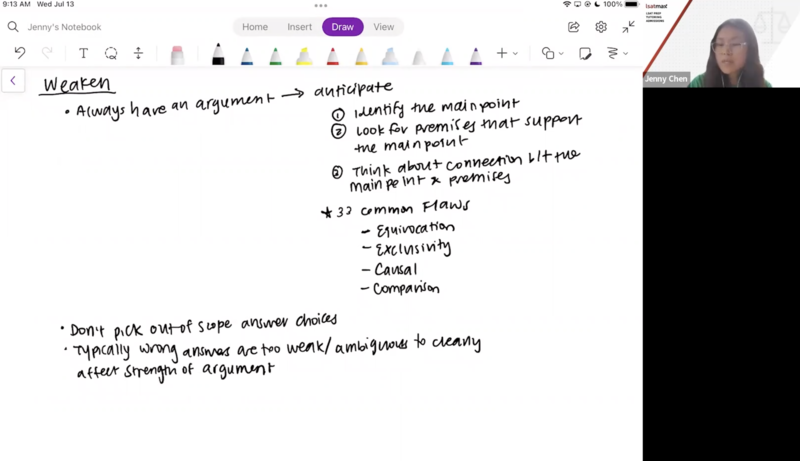 9:13 AM Wed Jul 13
100%
Jenny's Notebook
Home Insert Draw View
Weaken
• Always have an argument → anticipate
① Identify the main point
② Look for premises that support
the main point
② Think about connection b/t the
main point & premises
★ 32 common Flaws
- Equivocation
- Exclusivity
- Causal
- Comparison
• Don't pick out of scope answer choices
• Typically wrong answers are too weak/ambiguous to clearly
affect strength of argument
lsatmax
LSAT PREP
TUTORING
ADMISSIONS
Jenny Chen